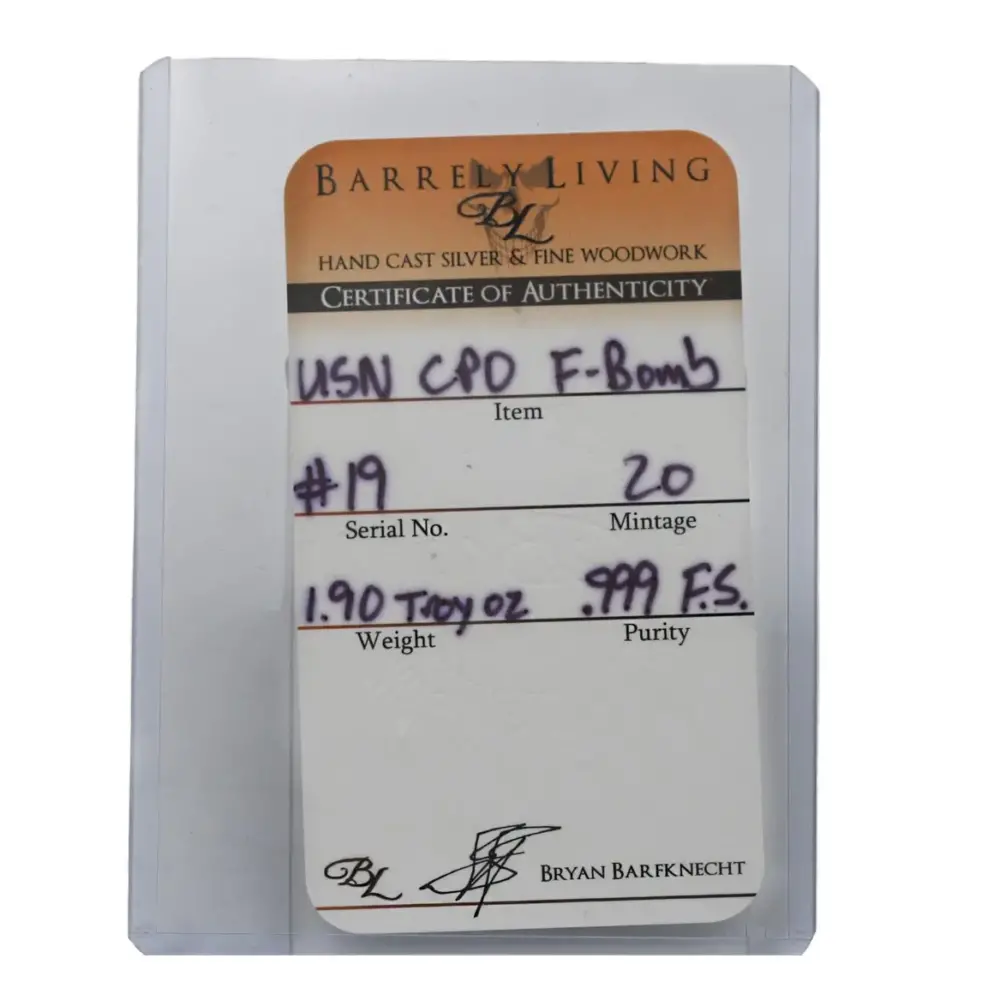 BARRELY LIVING
BL
HAND CAST SILVER & FINE WOODWORK
CERTIFICATE OF AUTHENTICITY
USN CPO F-Bomb
Item
#19 20
Serial No. Mintage
1.90 Troy oz .999 F.S.
Weight Purity
BL BRYAN BARFKNECHT